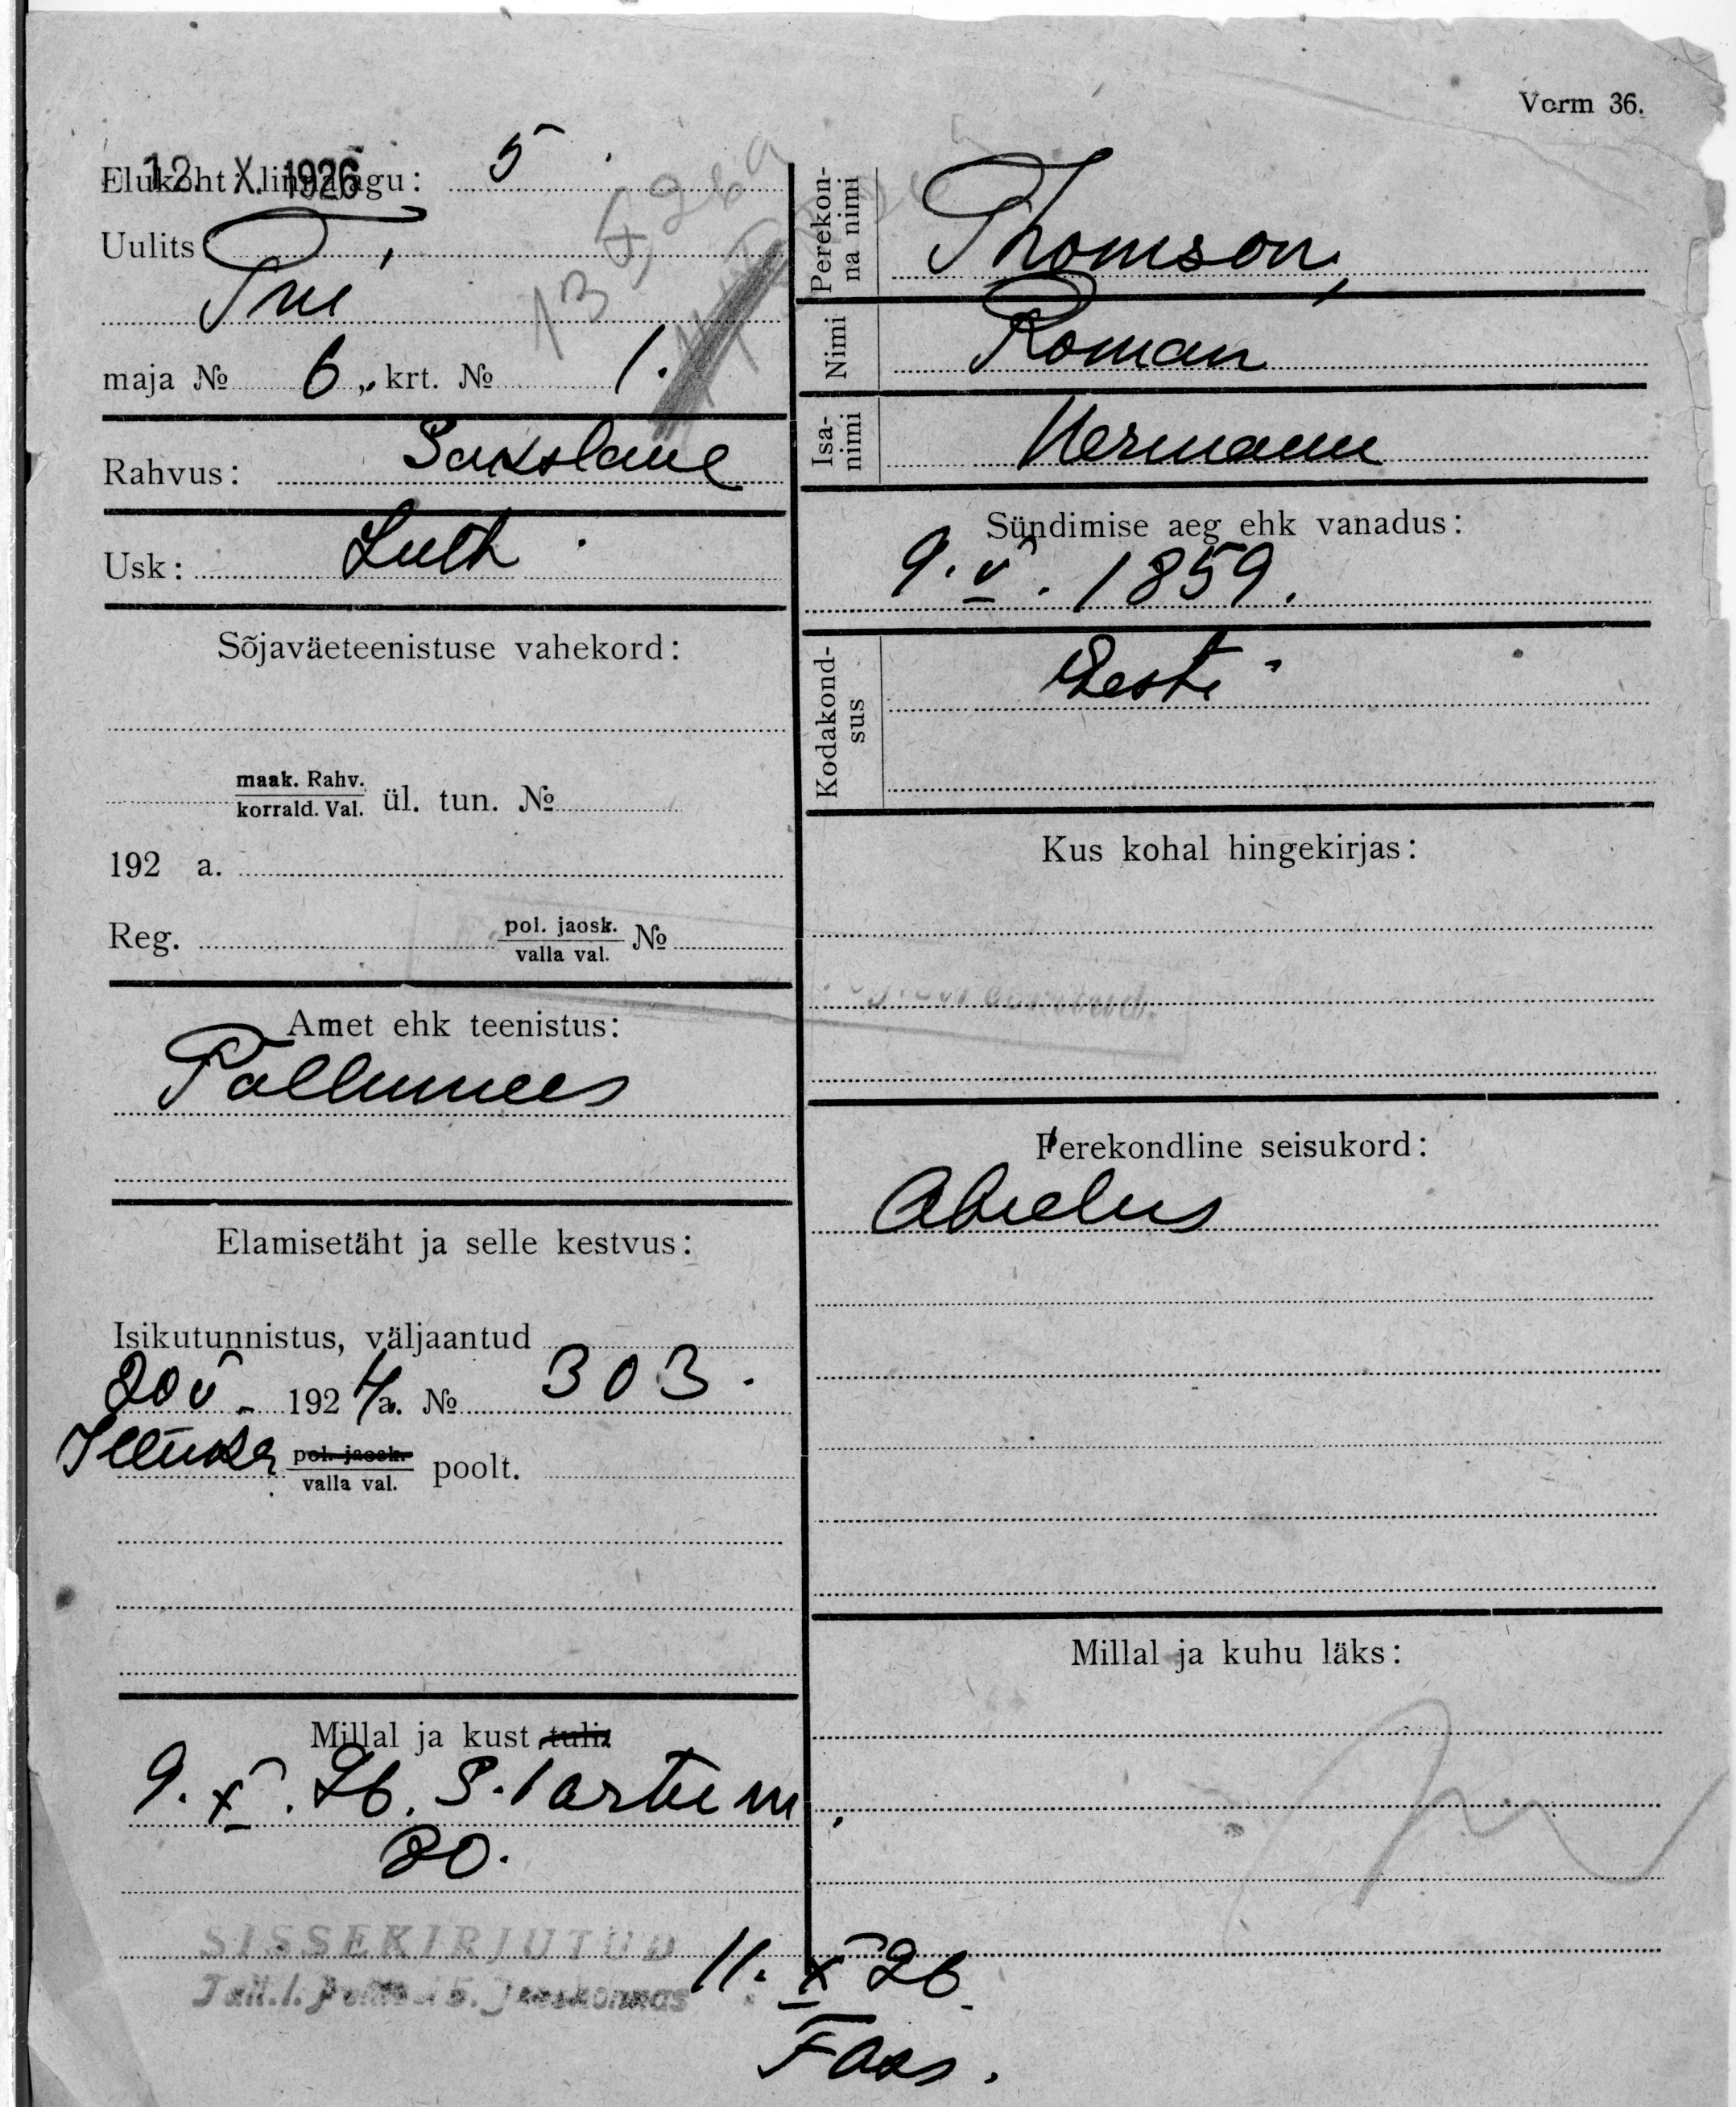 Vorm 36.
12. X. 1926
Elukoht: linnajagu: 5
Uulits
Trii
maja № 6 „ krt. № 1.
Rahvus: Sakslane
Usk: Luth.
Sõjaväeteenistuse vahekord:
maak. Rahv.
korrald. Val. ül. tun. №
192 a.
Reg. pol. jaosk.
valla val. №
Amet ehk teenistus:
Põllumees
Elamisetäht ja selle kestvus:
Isikutunnistus, väljaantud
20 V 1924 a. № 303.
pol. jaosk.
valla val. poolt.
Millal ja kust tuli:
9. X. 26. S. Tartu m
20.
SISSEKIRJUTUD
Tall. l. Politsei 5. jaoskonnas 11. X 26.
Perekonna nimi
Thomson,
Nimi Roman
Isanimi Hermann
Sündimise aeg ehk vanadus:
9. V. 1859.
Kodakondsus Eesti
Kus kohal hingekirjas:
Perekondline seisukord:
Abielus
Millal ja kuhu läks: